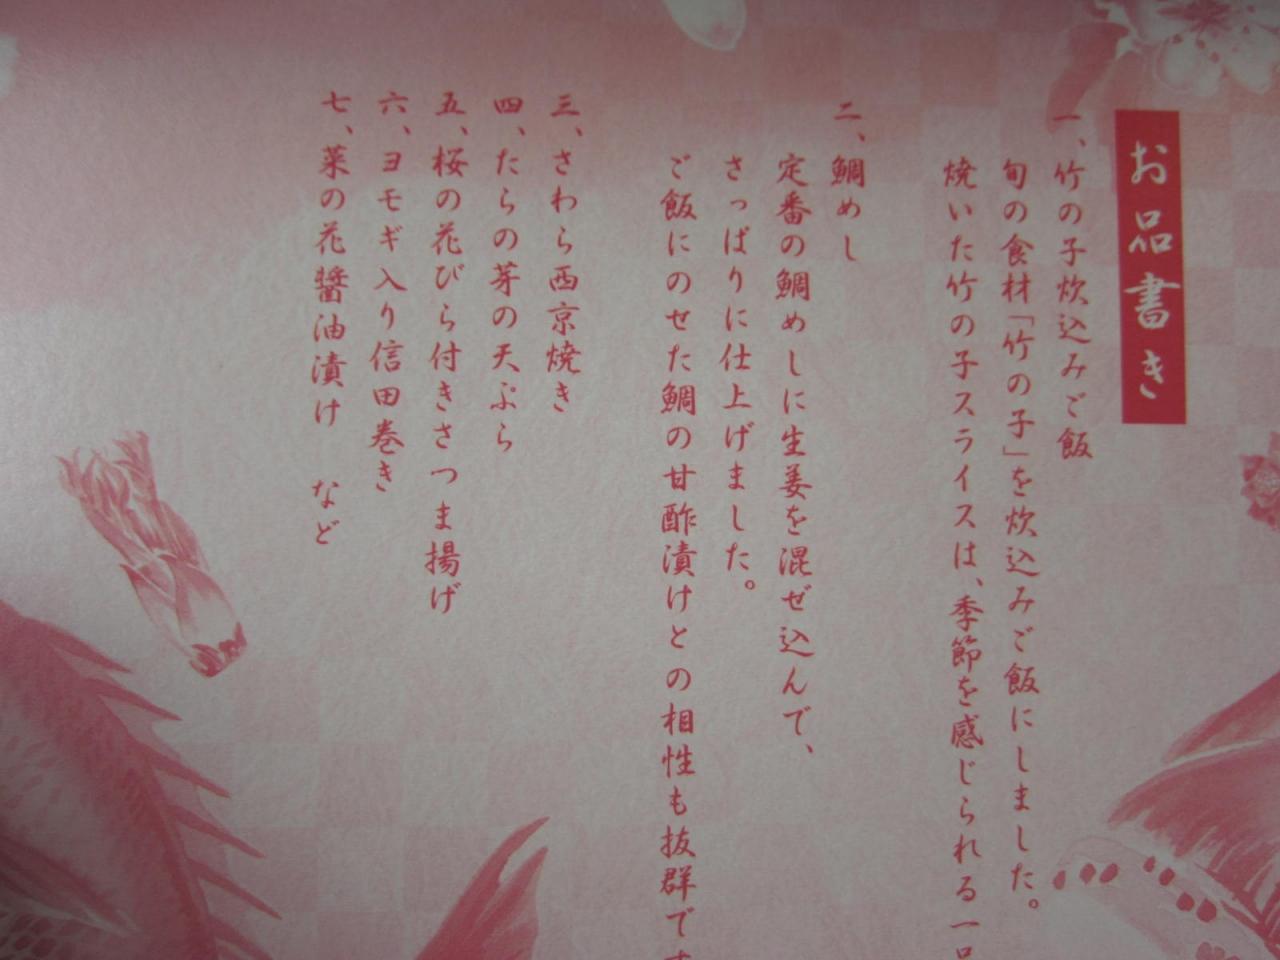 お品書き
一、竹の子炊込みご飯
旬の食材「竹の子」を炊込みご飯にしました。
焼いた竹の子スライスは、季節を感じられる一品
二、鯛めし
定番の鯛めしに生姜を混ぜ込んで、
さっぱりに仕上げました。
ご飯にのせた鯛の甘酢漬けとの相性も抜群です
三、さわら西京焼き
四、たらの芽の天ぷら
五、桜の花びら付きさつま揚げ
六、ヨモギ入り信田巻き
七、菜の花醤油漬け など